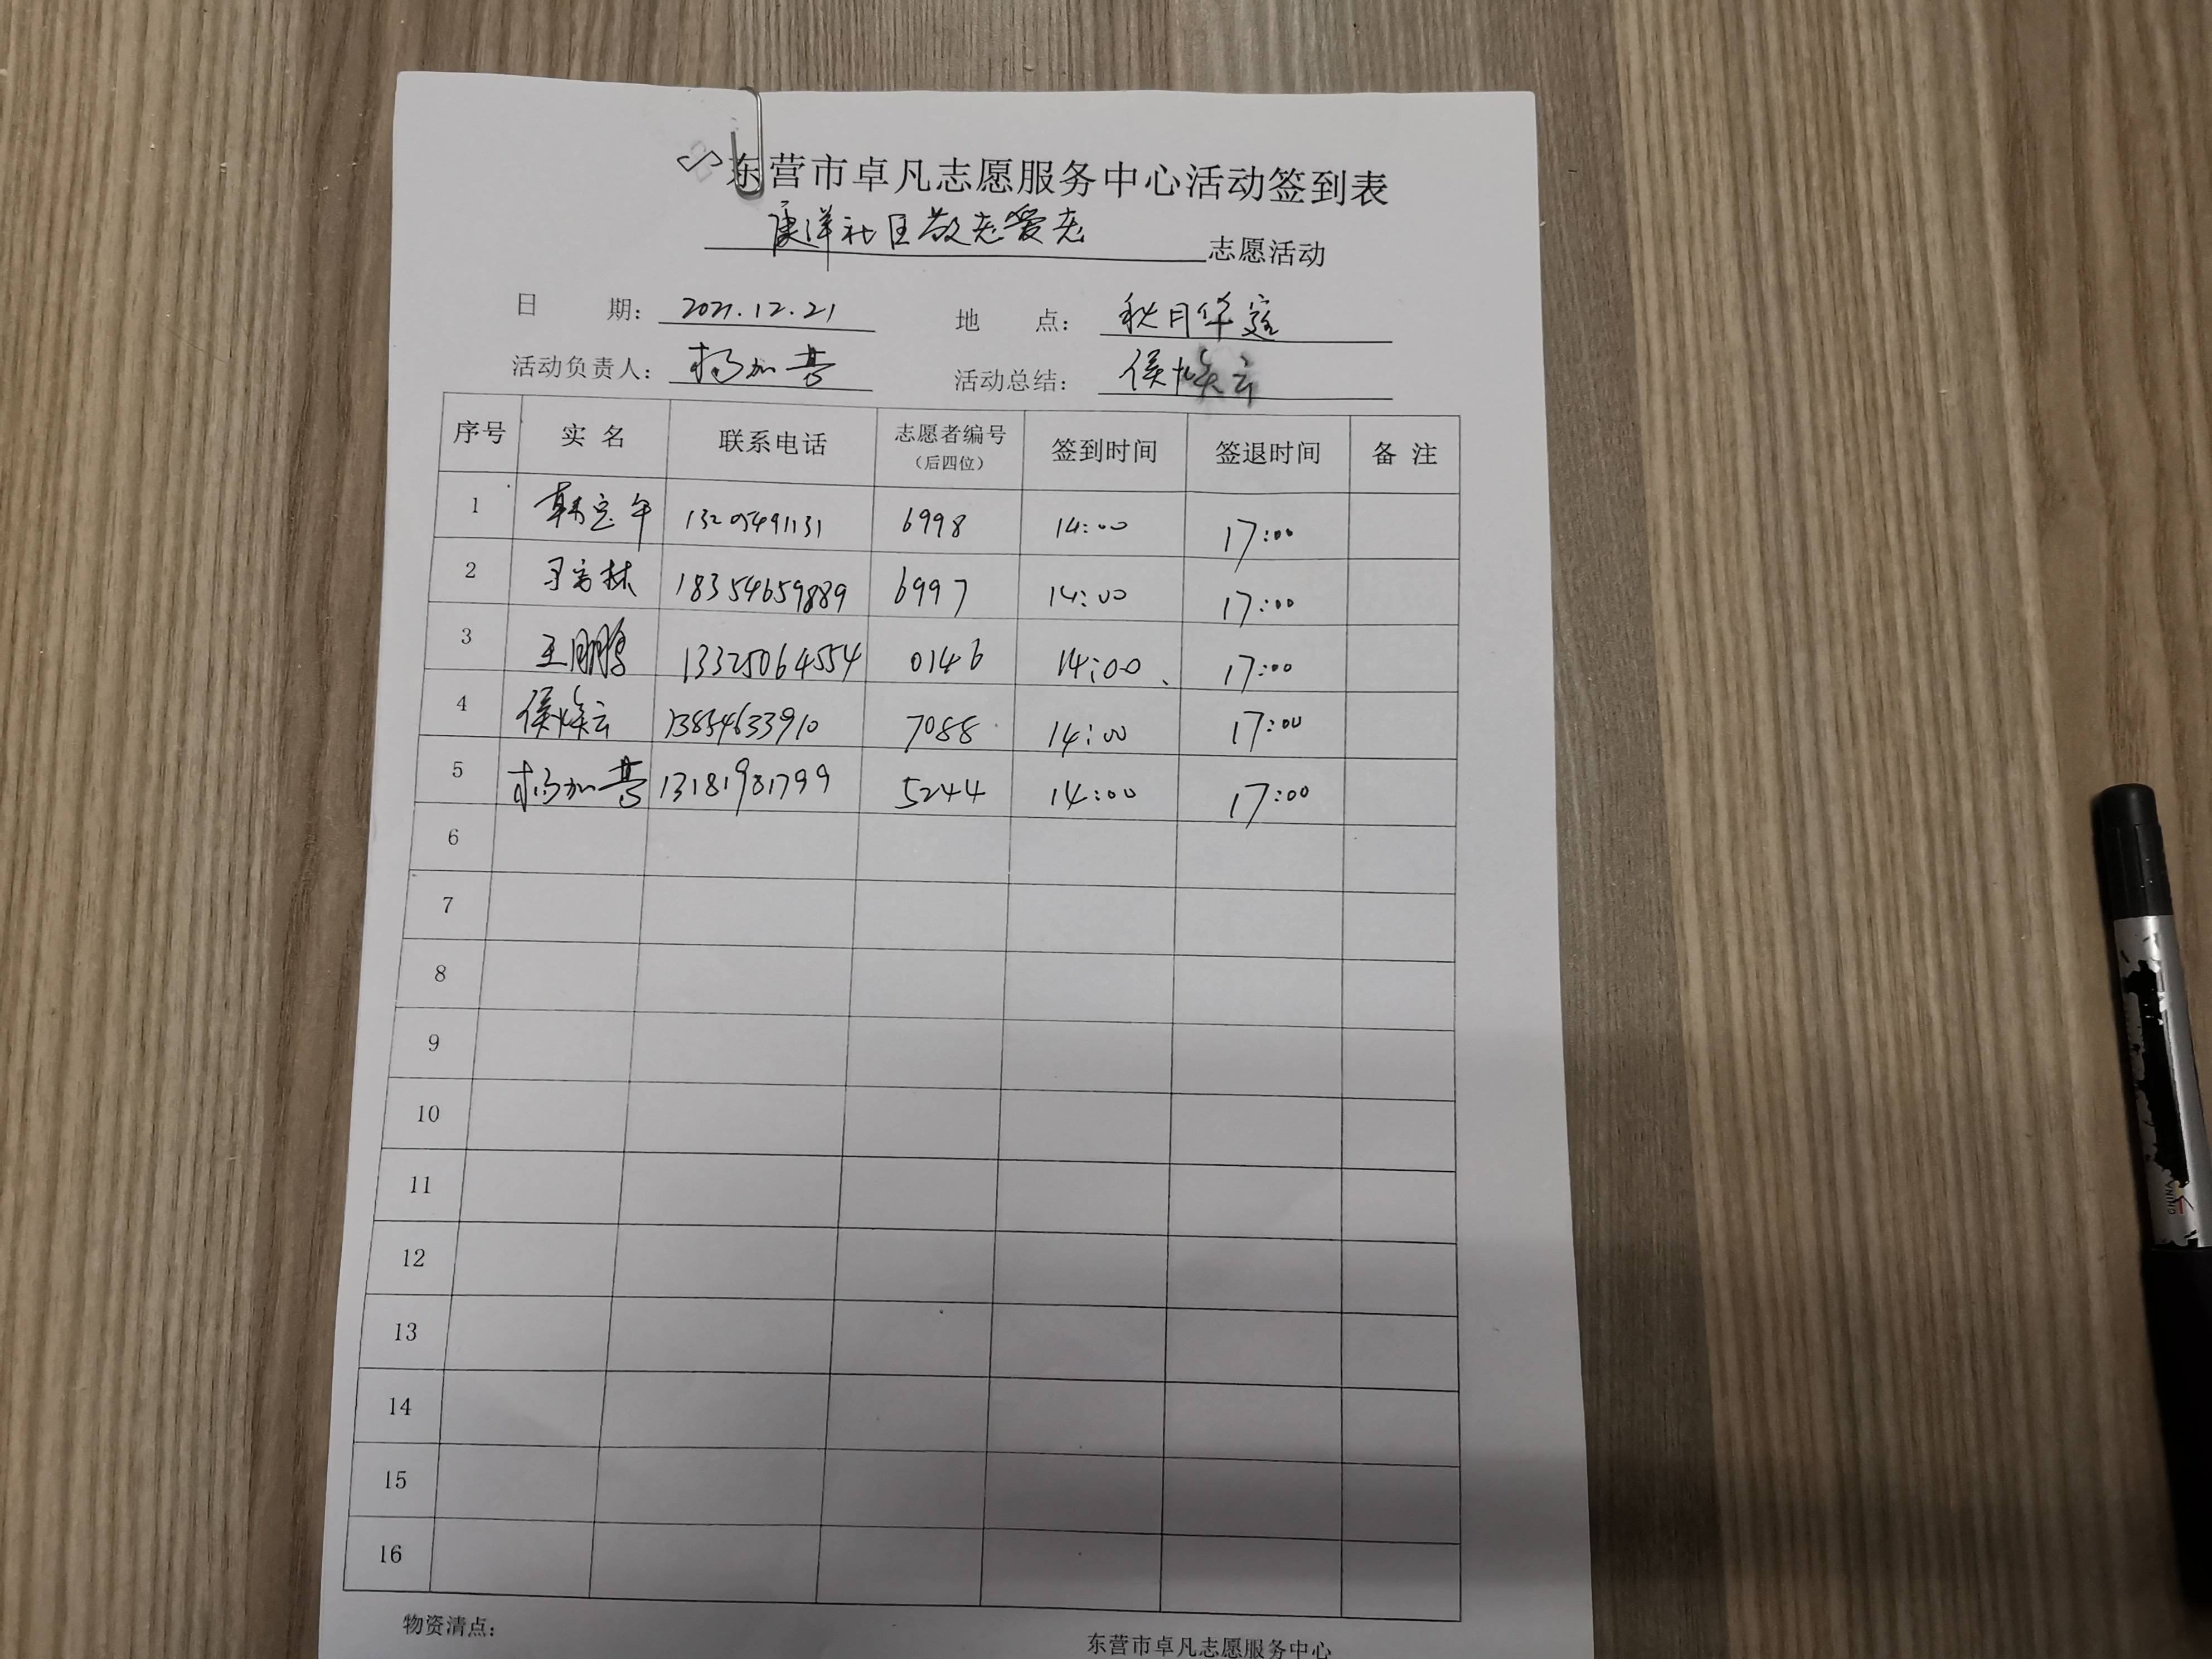 东营市卓凡志愿服务中心活动签到表
康洋社区敬老爱老 志愿活动
日 期: 2021.12.21 地 点: 秋月华庭
活动负责人: 杨加营 活动总结: 侯焕云
序号 实 名 联系电话 志愿者编号(后四位) 签到时间 签退时间 备 注
1 6998 14:00 17:00
2 18354659889 6997 14:00 17:00
3 王鹏鹏 13325064554 0146 14:00 17:00
4 侯焕云 13854633910 7088 14:00 17:00
5 杨加营 13181981799 5244 14:00 17:00
6
7
8
9
10
11
12
13
14
15
16
物资清点:
东营市卓凡志愿服务中心
CHINA